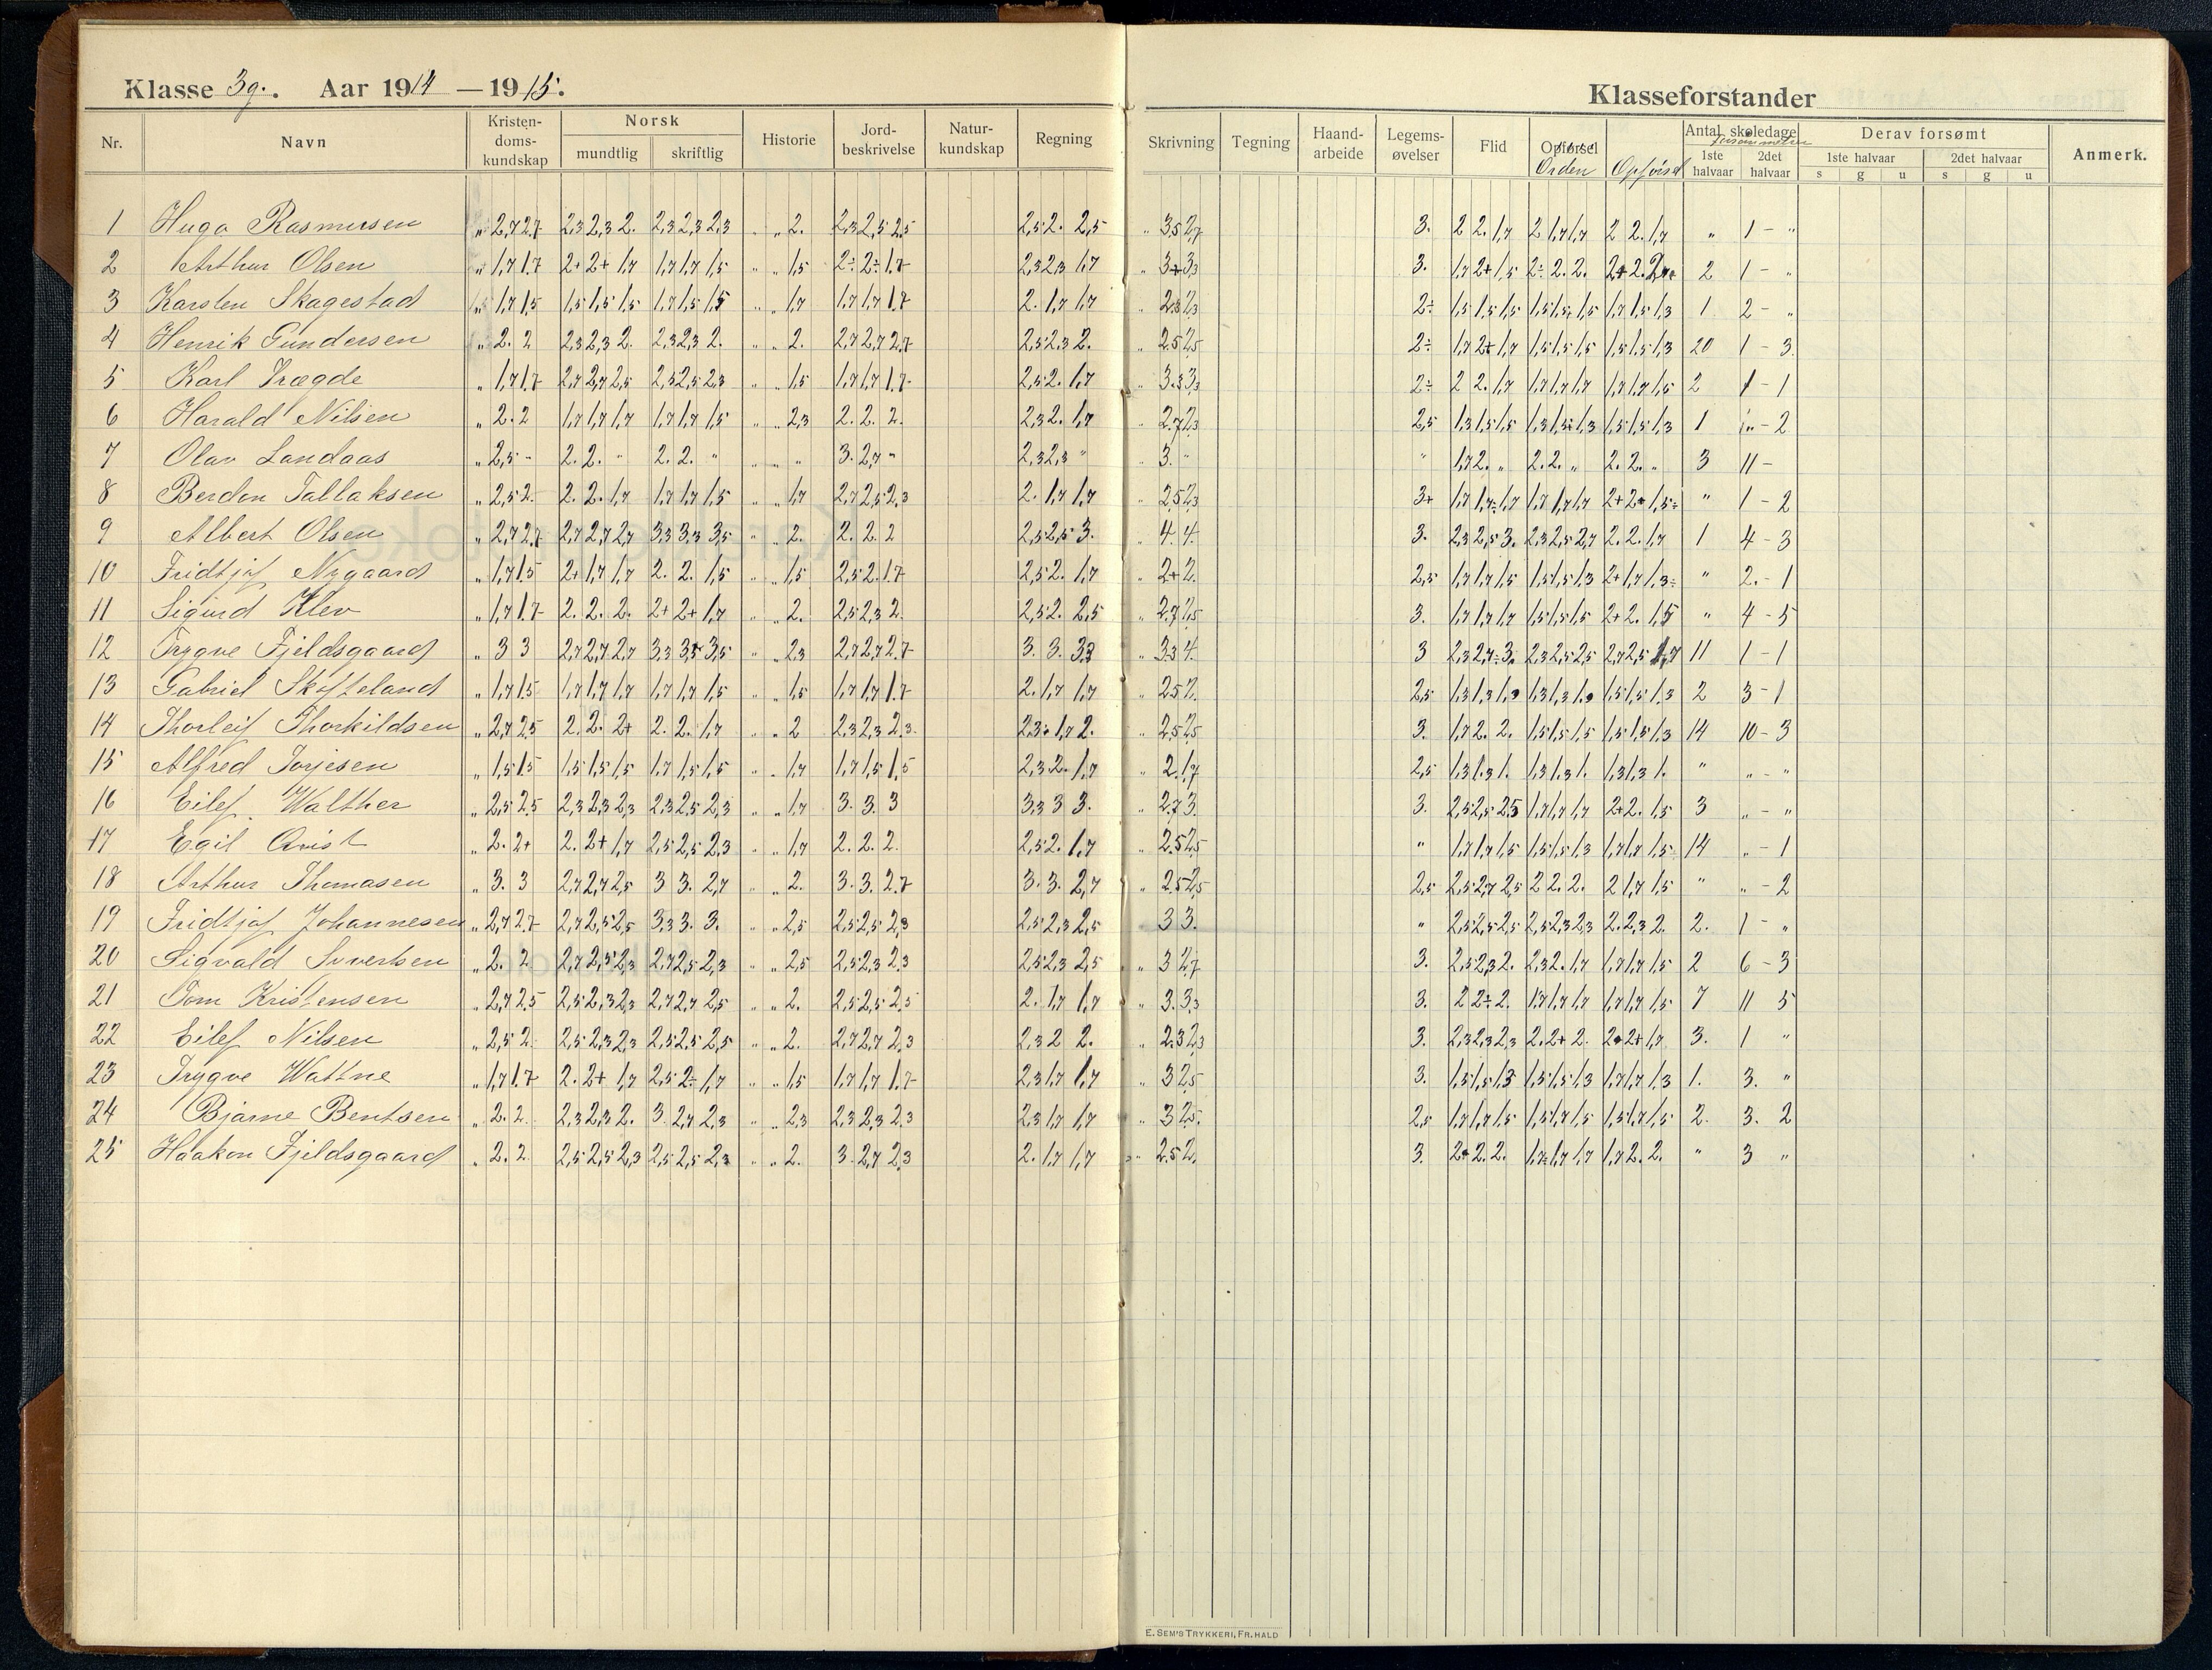 Klasse 3g. Aar 1914 — 1915.
Klasseforstander
Nr. Navn Kristendomskundskap Norsk mundtlig skriftlig Historie Jordbeskrivelse Naturkundskap Regning Skrivning Tegning Haandarbeide Legemsøvelser Flid Opførsel Orden Opførsel Antal skoledage 1ste halvaar 2det halvaar Derav forsømt 1ste halvaar s g u 2det halvaar s g u Anmerk.
1 Hugo Rasmussen „ 2,7 2,7 2,3 2,3 2. 2,3 2,3 2,3 „ „ 2. 2,3 2,5 2,5 2,5 2. 2,5 „ 3,5 2,7 3. 2 2. 1,7 2 1,7 1,7 2 2. 1,7 „ 1 - „
2 Arthur Olsen „ 1,7 1,7 2+ 2+ 1,7 1,7 1,7 1,5 „ „ 1,5 2÷ 2÷ 1,7 2,3 2,3 1,7 „ 3+ 3,3 3. 1,7 2+ 1,5 2÷ 2. 2. 2 1 - „
3 Karsten Skagestad 1,7 1,5 1,5 1,5 1,5 1,7 1,5 1,5 „ „ 1,7 1,7 1,7 1,7 2. 1,7 1,7 „ 2,3 2,3 2÷ 1,5 1,5 1,5 1,5 1,5 1,5 1,7 1,5 1,3 1 2 - „
4 Henrik Gundersen „ 2. 2 2,3 2,3 2. 2,3 2,3 2. „ „ 2. 2,7 2,7 2,7 2,5 2,3 2. „ 2,5 2,5 2÷ 1,7 2+ 1,7 1,5 1,5 1,5 1,5 1,5 1,3 20 1 - 3.
5 Karl Trægde „ 1,7 1,7 2,7 2,7 2,5 2,5 2,5 2,3 „ „ 1,5 1,7 1,7 1,7 2,5 2. 1,7 „ 3,3 3,3 2÷ 2 2. 1,7 1,7 1,7 1,7 1,7 1,7 1,5 2 1 - 1
6 Harald Nilsen „ 2. 2 1,7 1,7 1,7 1,7 1,7 1,5 „ „ 2,3 2. 2. 2. 2,3 2. 1,7 „ 2,7 2,3 2,5 1,3 1,5 1,5 1,3 1,5 1,3 1,5 1,5 1,3 1 - 2
7 Olav Landaas „ 2,5 - 2. 2. „ 2. 2. „ „ „ „ 3. 2,7 „ 2,3 2,3 „ „ 3. „ „ 1,7 2. „ 2. 2. „ 2. 2. „ 3 11 -
8 Berdon Tallaksen „ 2,5 2. 2. 2. 1,7 1,7 1,7 1,5 „ „ 1,7 2,7 2,5 2,3 2. 1,7 1,7 „ 2,5 2,3 3+ 1,7 1,7÷ 1,7 1,7 1,7 1,7 2+ 2+ 1,5÷ „ 1 - 2
9 Albert Olsen „ 2,7 2,7 2,7 2,7 2,7 3,3 3,3 3,5 „ „ 2. 2. 2. 2 2,5 2,5 3. „ 4. 4. 3. 2,3 2,5 3. 2,3 2,5 2,7 2. 2. 1,7 1 4 - 3
10 Fridtjof Nygaard „ 1,7 1,5 2+ 1,7 1,7 2. 2. 1,5 „ „ 1,5 2,5 2. 1,7 2,5 2. 1,7 „ 2+ 2. 2,5 1,7 1,7 1,5 1,5 1,5 1,3 2+ 1,7 1,3÷ „ 2. - 1
11 Sigurd Klev „ 1,7 1,7 2. 2. 2. 2+ 2+ 1,7 „ „ 2. 2,5 2,3 2. 2,5 2. 2,5 „ 2,7 2,5 3. 1,7 1,7 1,7 1,5 1,5 1,5 2+ 2. 1,5 „ 4 - 5
12 Trygve Fjeldsgaard „ 3 3 2,7 2,7 2,7 3,3 3,5 3,5 „ „ 2,3 2,7 2,7 2,7 3. 3. 3,3 „ 3,3 4. 3 2,3 2,7÷ 3. 2,3 2,5 2,5 2,7 2,5 1,7 11 1 - 1
13 Gabriel Skofteland „ 1,7 1,5 1,7 1,7 1,7 1,7 1,7 1,5 „ „ 1,5 1,7 1,7 1,7 2. 1,7 1,7 „ 2,5 2. 2,5 1,3 1,3 1,3 1,3 1,3 1,5 1,5 1,3 2 3 - 1
14 Thorleif Thorkildsen „ 2,7 2,5 2. 2. 2+ 2. 2. 1,7 „ „ 2 2,3 2,3 2,3 2,3÷ 1,7 2. „ 2,5 2,5 3. 1,7 2. 2. 1,5 1,5 1,5 1,5 1,5 1,3 14 10 - 3
15 Alfred Torjesen „ 1,5 1,5 1,5 1,5 1,5 1,7 1,5 1,5 „ „ 1,7 1,7 1,5 1,5 2,3 2. 1,7 „ 2. 1,7 2,5 1,3 1,3 1. 1,3 1,3 1. 1,3 1,3 1. „ „ - „
16 Eilef Walther „ 2,5 2,5 2,3 2,3 2,3 2,3 2,5 2,3 „ „ 1,7 3. 3. 3 3,3 3 3. „ 2,7 3. 3. 2,5 2,5 2,5 1,7 1,7 1,7 2+ 2. 1,5 3 „ - „
17 Egil Qvist „ 2. 2+ 2. 2+ 1,7 2,5 2,5 2,3 „ „ 1,7 2. 2. 2. 2,5 2. 1,7 „ 2,5 2,5 „ 1,7 1,7 1,5 1,5 1,5 1,3 1,7 1,7 1,5 14 „ - 1
18 Arthur Thomasen „ 3. 3 2,7 2,7 2,5 3 3. 2,7 „ „ 2. 3. 3. 2,7 3. 3. 2,7 „ 2,5 2,5 2,5 2,5 2,7 2,5 2 2. 2. 2 1,7 1,5 „ „ - 2
19 Fridtjof Johannesen „ 2,7 2,7 2,7 2,5 2,5 3,3 3. 3. „ „ 2,5 2,5 2,5 2,3 2,5 2,3 2,5 3 3. „ 2,5 2,5 2,5 2,5 2,3 2,3 2. 2,3 2. 2. 1 - „
20 Sigvald Syvertsen „ 2. 2 2,7 2,5 2,3 2,7 2,5 2,3 „ „ 2,5 2,5 2,3 2,3 2,5 2,3 2,5 „ 3 2,7 3. 2,5 2,3 2. 2,3 2. 1,7 1,7 1,7 1,5 2 6 - 3
21 Tom Kristensen „ 2,7 2,5 2,5 2,3 2,3 2,7 2,7 2,5 „ „ 2. 2,5 2,5 2,5 2. 1,7 1,7 „ 3. 3,3 3. 2 2÷ 2. 1,7 1,7 1,7 1,7 1,7 1,5 7 11 5
22 Eilef Nilsen „ 2,5 2 2,5 2,3 2,3 2,5 2,5 2,5 „ „ 2. 2,7 2,7 2,3 2,3 2 2. „ 2,3 2,3 3. 2,3 2,3 2,3 2. 2+ 2. 2+ 2+ 1,7 3. 1 „
23 Trygve Wattne „ 1,7 1,7 2. 2+ 1,7 2,5 2÷ 1,7 „ „ 1,5 1,7 1,7 1,7 2,3 1,7 1,7 „ 3 2,5 3. 1,5 1,5 1,3 1,5 1,5 1,3 1,7 1,7 1,3 1. 3. „
24 Bjarne Bentsen „ 2. 2. 2,3 2,3 2. 3. 2,7 2,3 „ „ 2,3 2,3 2,3 2,3 2,3 1,7 1,7 „ 3 2,5. 2,5 1,7 1,7 1,5 1,5 1,7 1,5 1,5 1,7 1,5 2. 3. 2
25 Haakon Fjeldsgaard „ 2. 2. 2,5 2,5 2,3 2,5 2,5 2,3 „ „ 2. 3. 2,7 2,3 2. 1,7 1,7 „ 2,5 2. 3. 2+ 2. 2. 1,7÷ 1,7 1,7 1,7 2. 2. „ 3 „
E. SEM'S TRYKKERI, FR. HALD